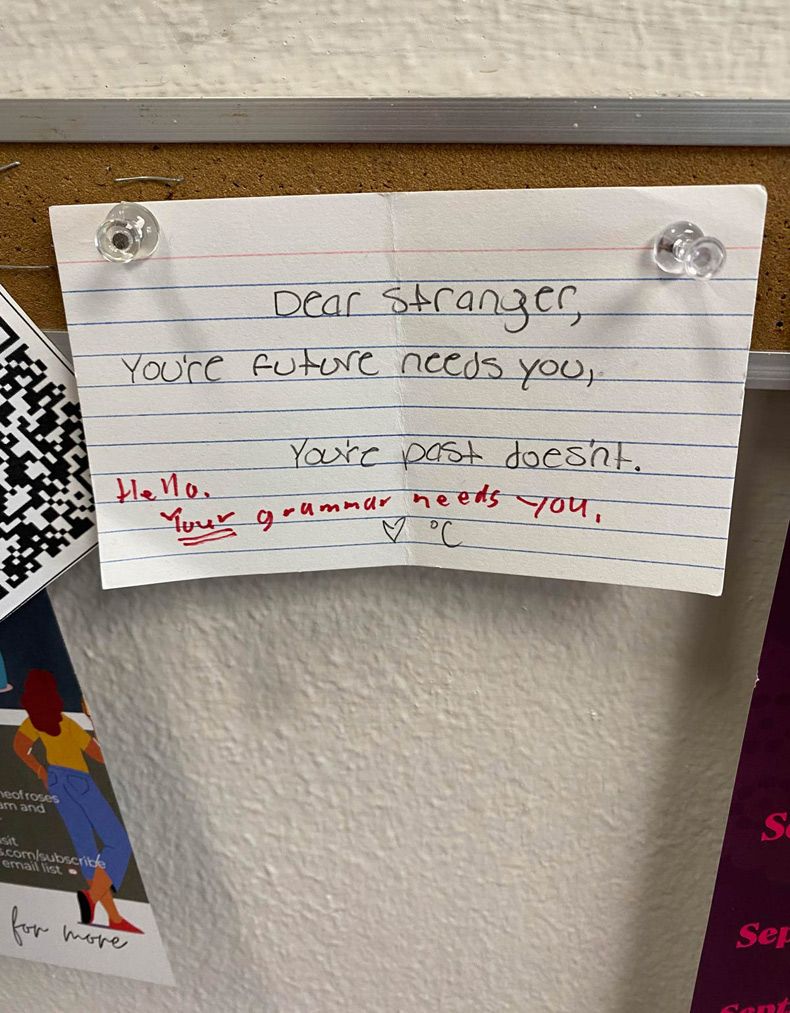 Dear Stranger,
You're future needs you,
You're past does'nt.
Hello.
Your grammar needs you.
♡ °C
eofroses
am and
sit
s.com/subscribe
email list
for more
Se
Sep
Sept